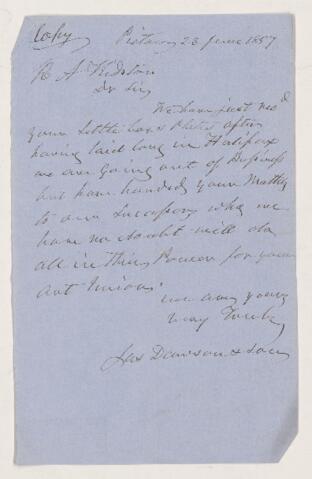 Copy Pictou 23 June 1857
R A Kidston
Dr Sir
We have just recd
your little box & plates after
having laid long in Halifax
we are going out of Business
but have handed your matter
to our Successors who we
have no doubt will do
all in their Power for your
Art Union.
we are yours
very Truly
Jas Dawson & Son